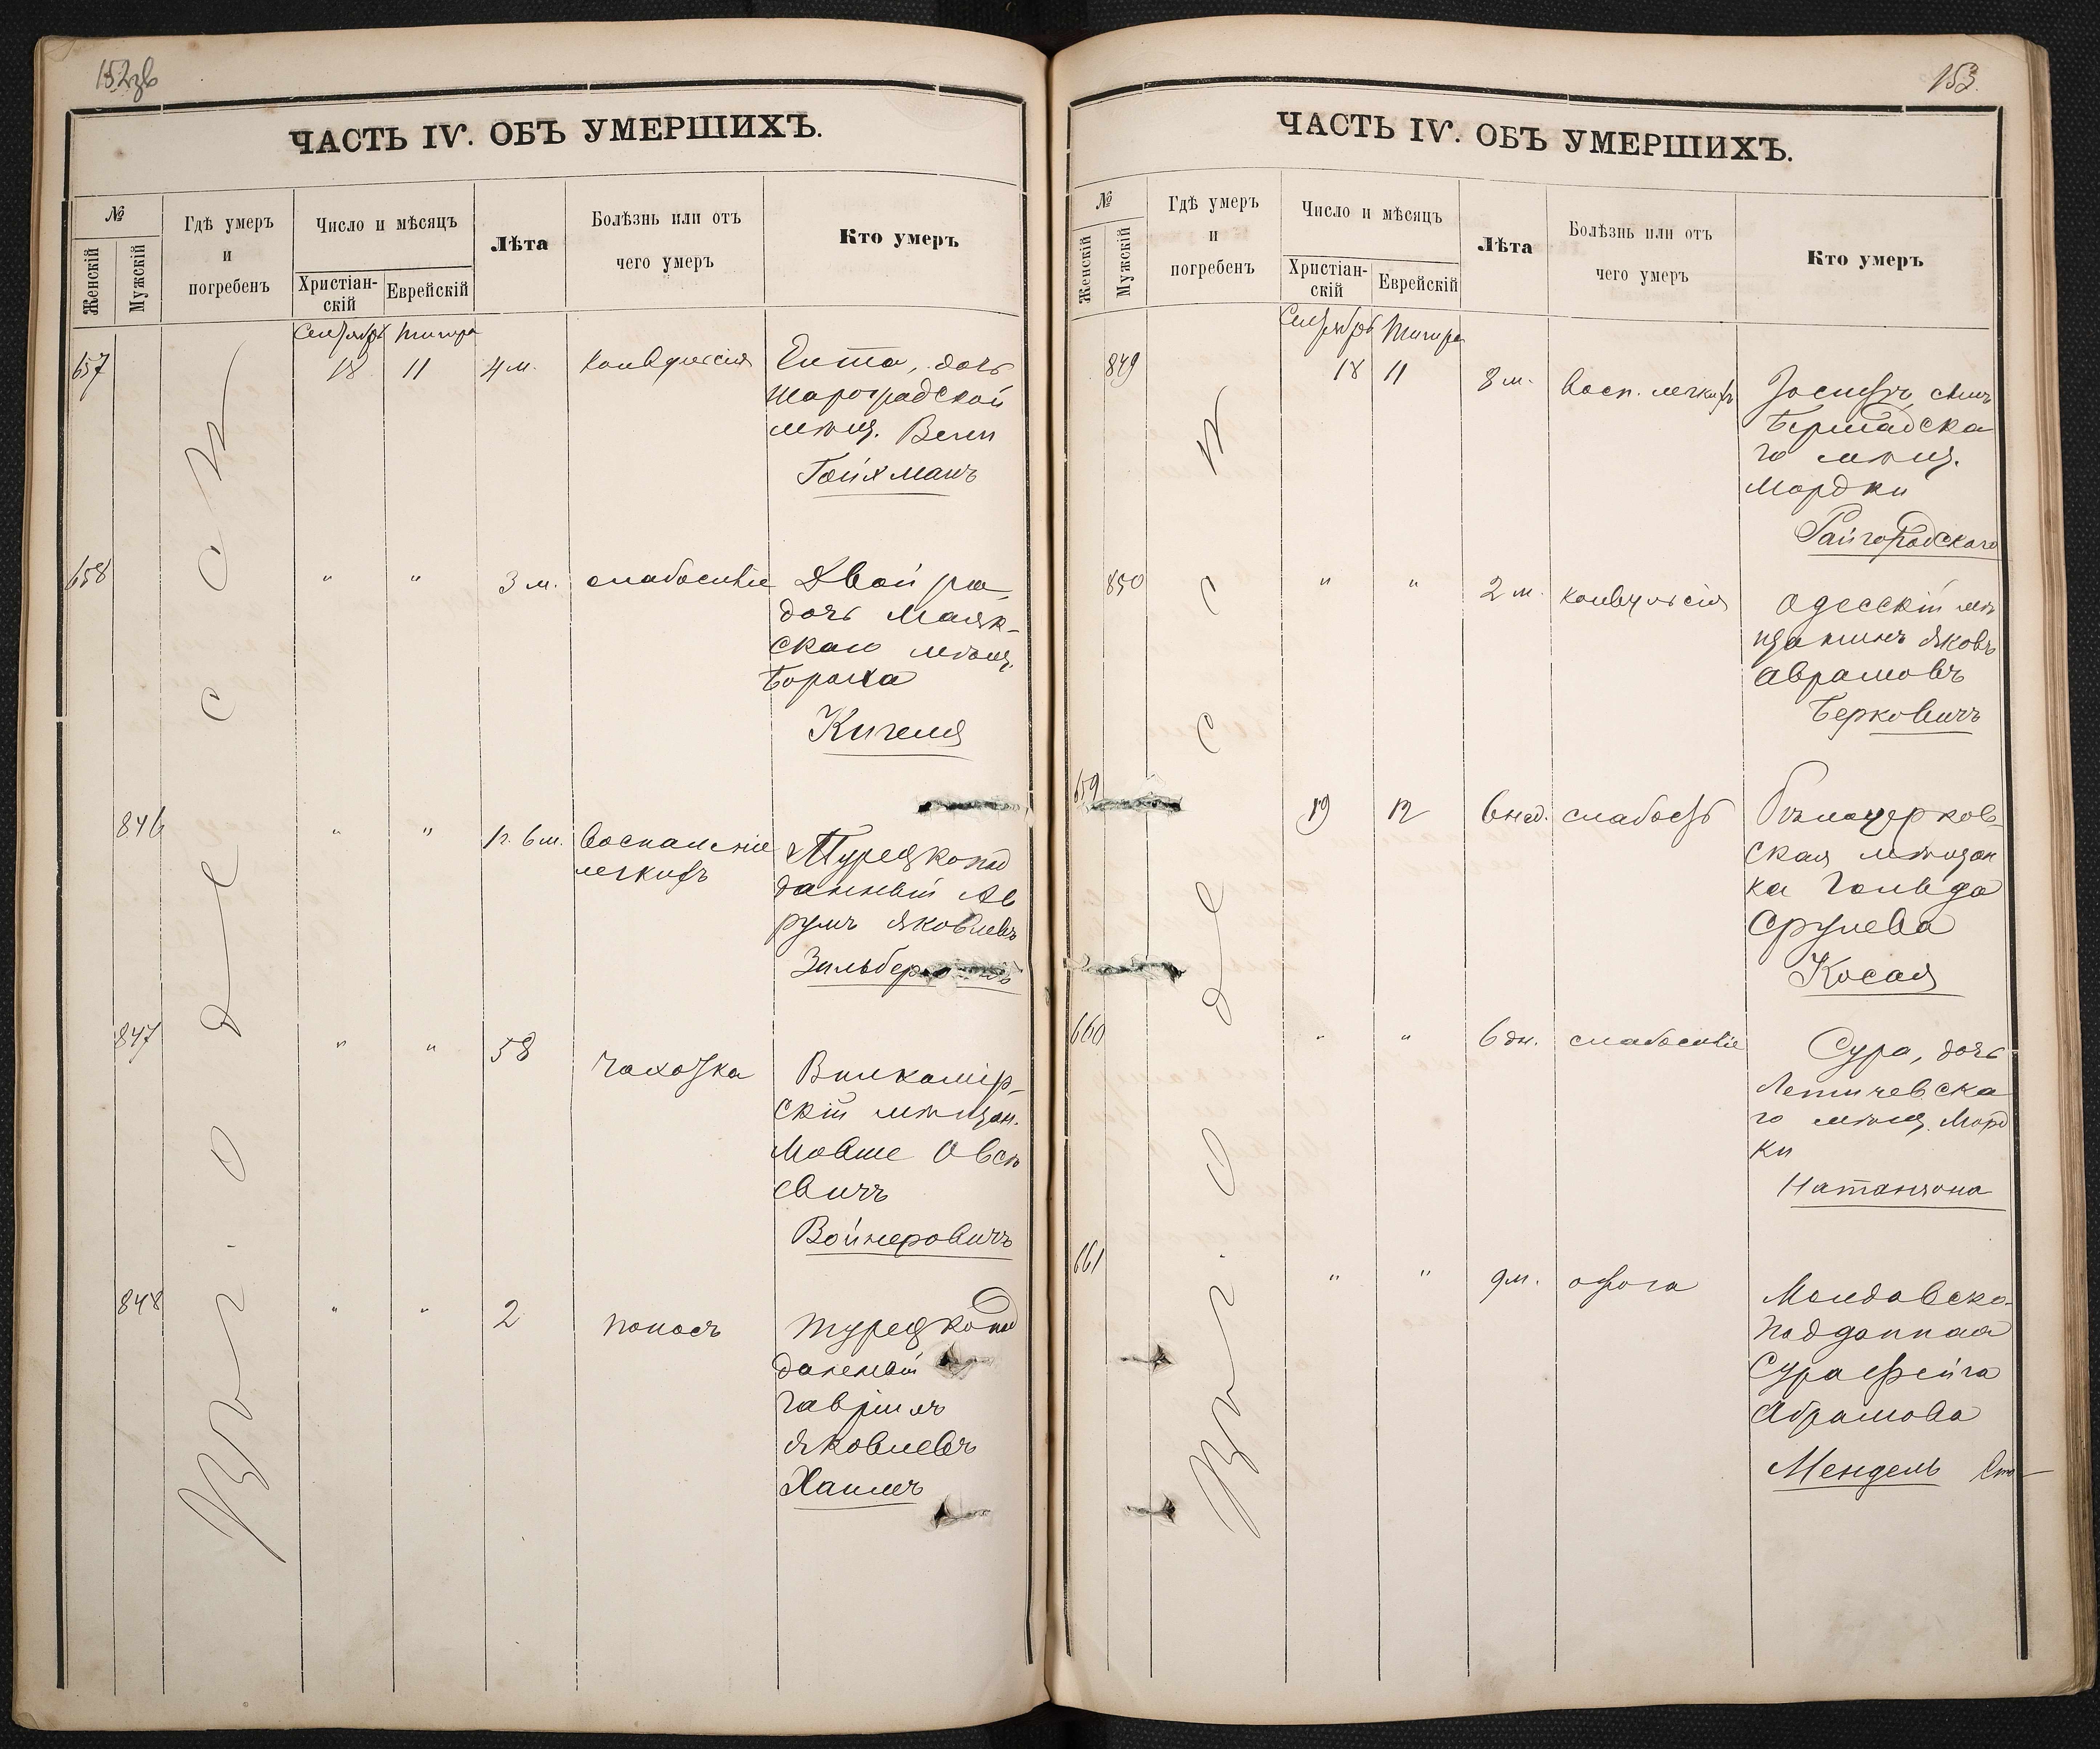 152зв
ЧАСТЬ IV. ОБЪ УМЕРШИХЪ.
№
Женскій
Мужскій
Гдѣ умеръ
и
погребенъ
Число и мѣсяцъ
Христіан-
скій
Еврейскій
Лѣта
Болѣзнь или отъ
чего умеръ
Кто умеръ
Сентябрь Тишри
В г. Одессѣ
657 18 11 4 м. конвульсія Ента, дочь
Шаргородской
мѣщ. Вели
Гойхманъ
658 " " 3 м. слабосиліе Двойра,
дочь Маяк-
скаго мѣщ.
Бороха
Кигеля
846 " " 1 г. 6 м. воспаленіе
легкихъ
Турецкопод
данный Ав
румъ Яковлевъ
847 " " 58 чахотка Вилкомір-
скій мѣщан.
Мовше Овсѣ
евичъ
Войнеровичъ
848 " " 2 поносъ Турецкопод
данный
Гавріилъ
Яковлевъ
Хаимъ
153.
ЧАСТЬ IV. ОБЪ УМЕРШИХЪ.
№
Женскій
Мужскій
Гдѣ умеръ
и
погребенъ
Число и мѣсяцъ
Христіан-
скій
Еврейскій
Лѣта
Болѣзнь или отъ
чего умеръ
Кто умеръ
Сентябрь Тишри
В г. Одессѣ
849 18 11 8 м. восп. легкихъ Іосифъ, сынъ
Бершадска
го мѣщ.
Мордки
Райгородскаго
850 " " 2 м. конвульсія Одесскій мѣ
щанинъ Яковъ
Аврамовъ
Берковичъ
659 19 12 6 нед. слабость Бѣлоцерков-
ская мѣщан
ка Гольда
Срулева
Косая
660 " " 6 дн. слабосиліе Сура, дочь
Летичевска
го мѣщ. Морд
ки
Натанзона
661 " " 9 м. Молдавско-
подданная
Сура Фейга
Абрамова
Мендель